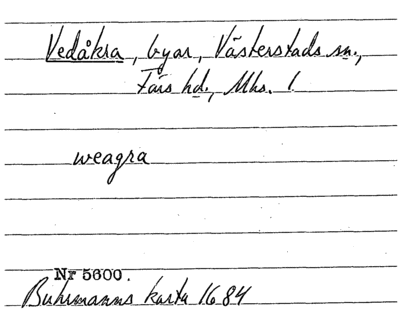 Vedåkra, byar, Västerstads sn.,
Färs hd., Mhs. l.
weagra
Nr 5600.
Buhrmanns karta 1684